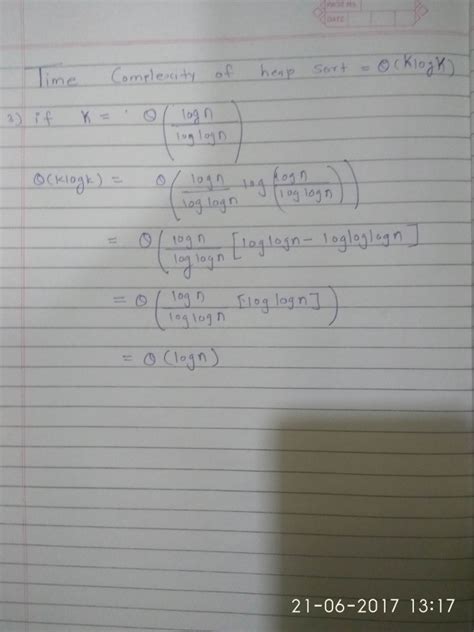 DATE
Time Complexity of heap sort = Θ(KlogK)
3) if K = Θ(logn / loglogn)
Θ(Klogk) = Θ(logn / loglogn log(logn / loglogn))
= Θ(logn / loglogn [loglogn - logloglogn]
= Θ(logn / loglogn [loglogn])
= Θ(logn)
21-06-2017 13:17